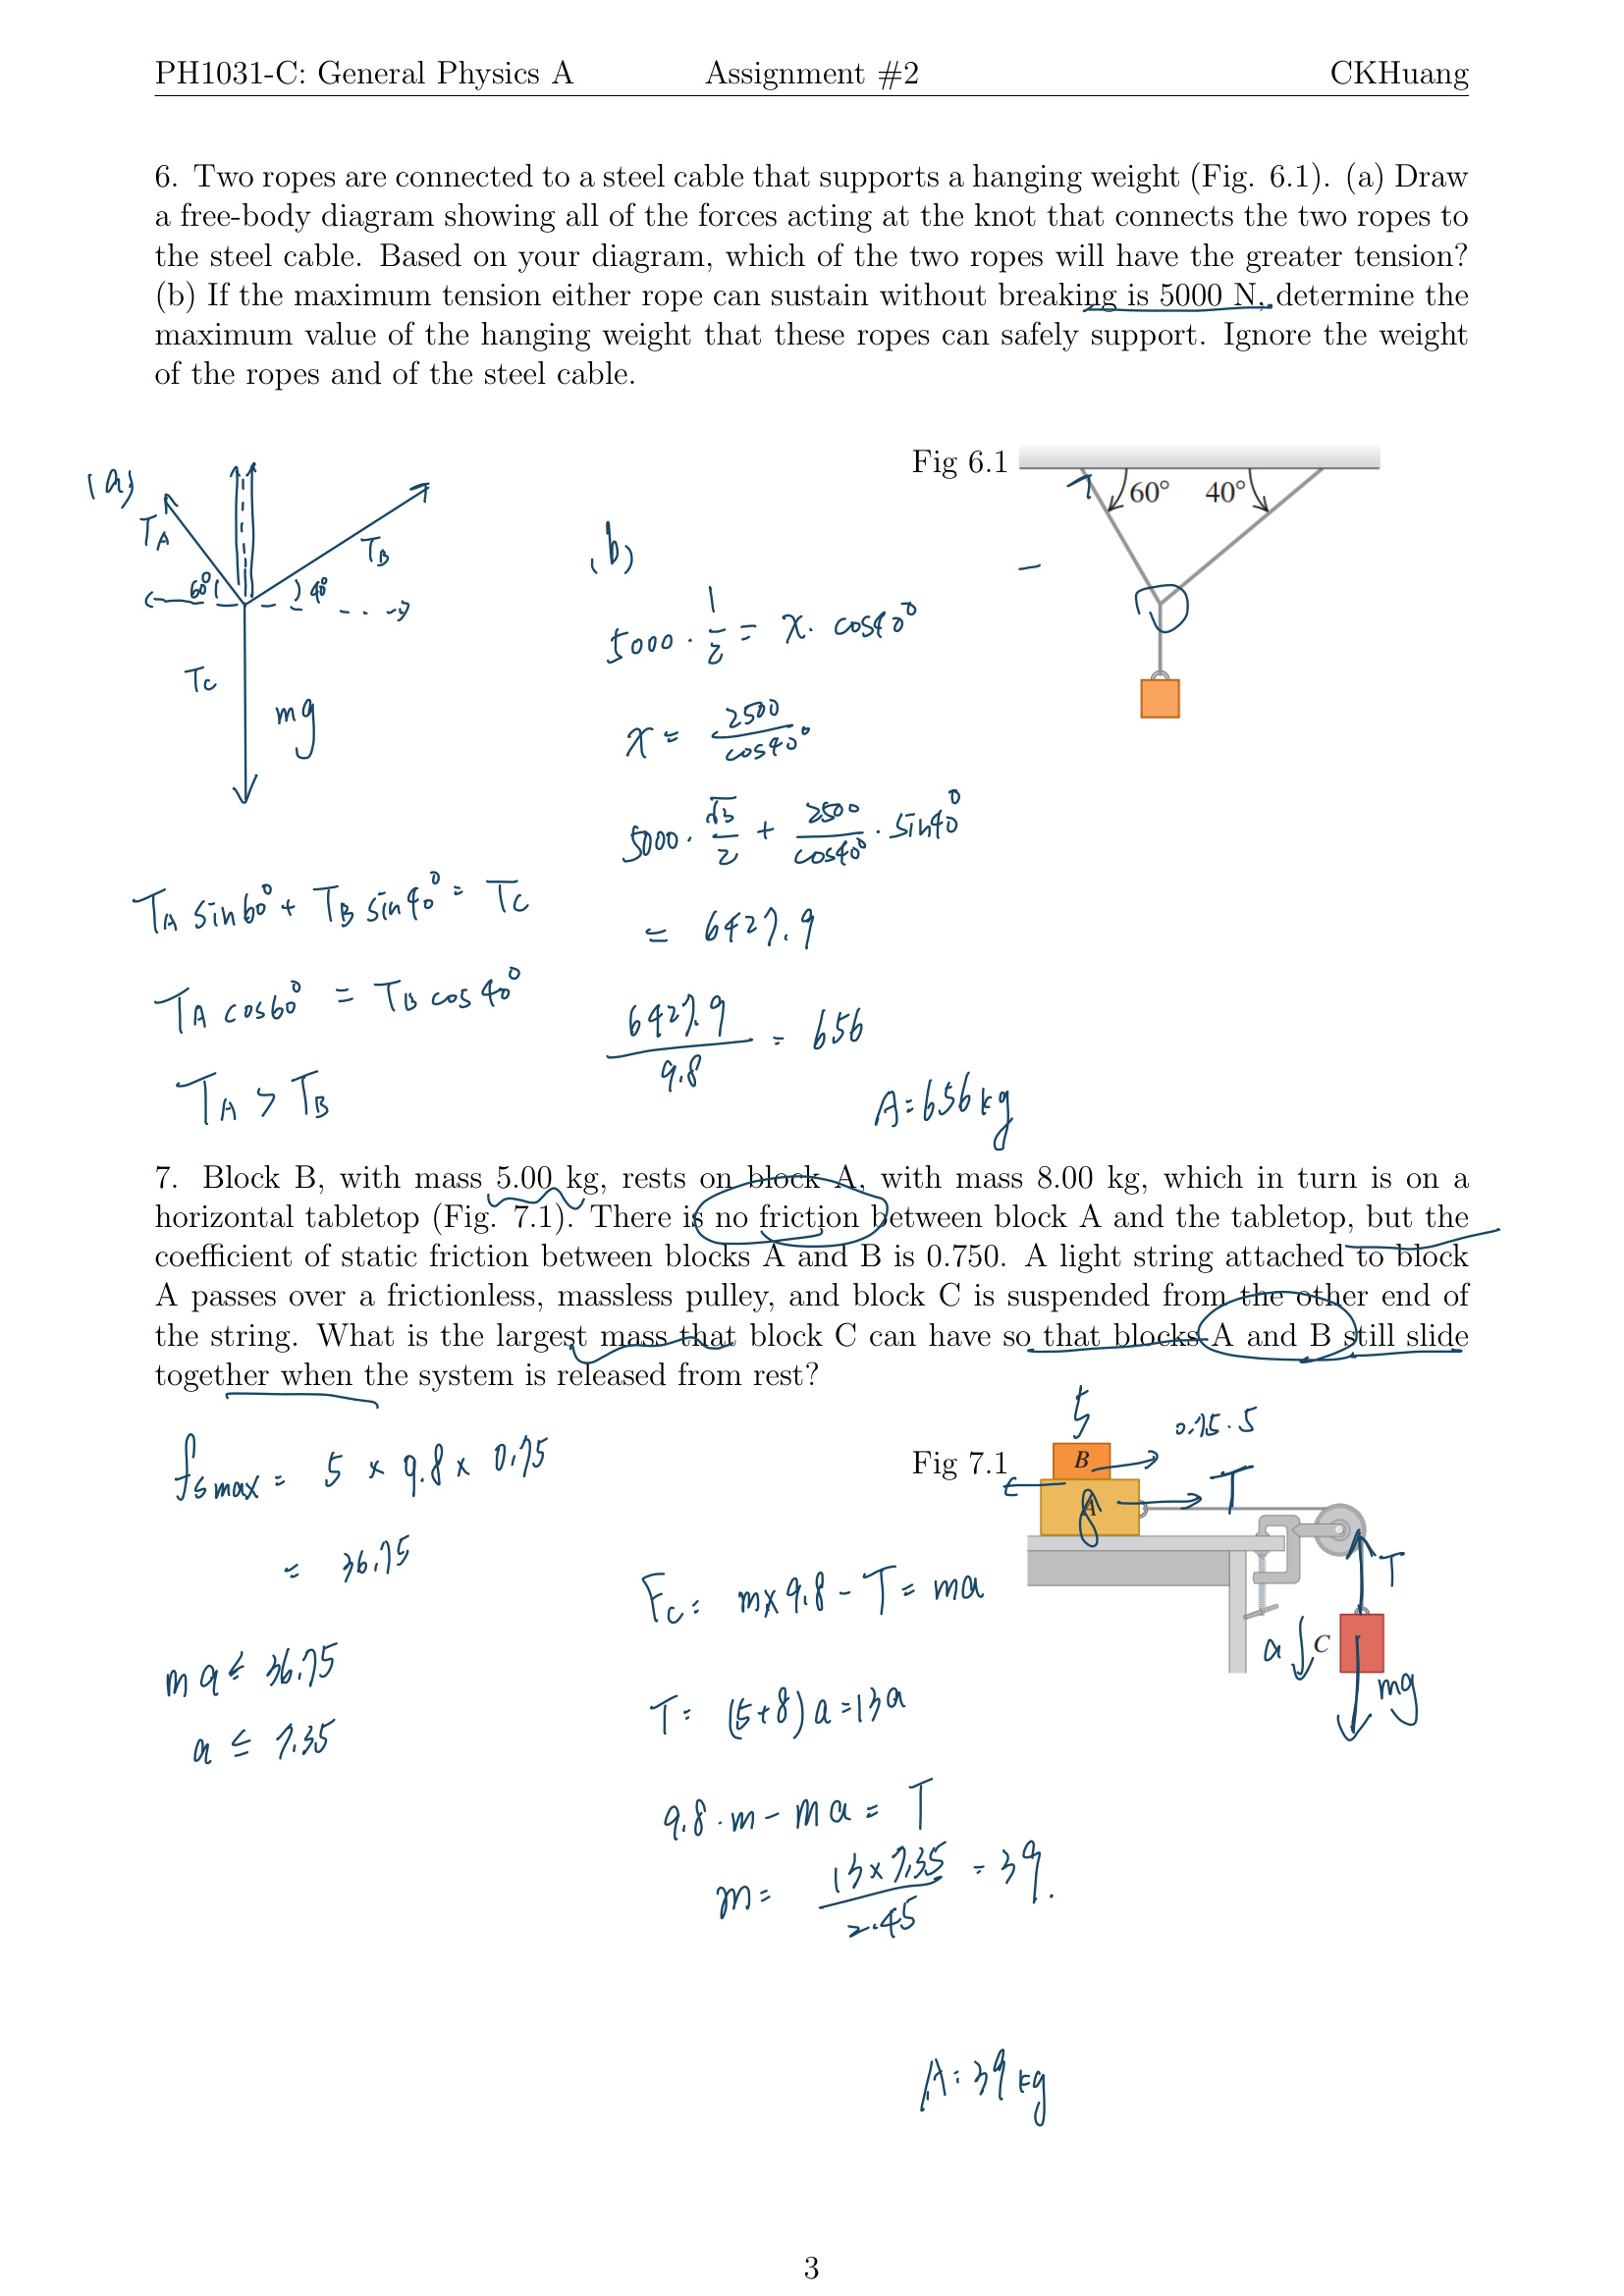 PH1031-C: General Physics A Assignment #2 CKHuang
6. Two ropes are connected to a steel cable that supports a hanging weight (Fig. 6.1). (a) Draw
a free-body diagram showing all of the forces acting at the knot that connects the two ropes to
the steel cable. Based on your diagram, which of the two ropes will have the greater tension?
(b) If the maximum tension either rope can sustain without breaking is 5000 N, determine the
maximum value of the hanging weight that these ropes can safely support. Ignore the weight
of the ropes and of the steel cable.
(a)
T_A
T_B
60°
40°
T_C
mg
T_A sin60° + T_B sin40° = T_C
T_A cos60° = T_B cos40°
T_A > T_B
(b)
5000 · 1/2 = x · cos40°
x = 2500/cos40°
5000 · √3/2 + 2500/cos40° · sin40°
= 6427.9
6427.9/9.8 = 656
A = 656 kg
Fig 6.1
60° 40°
7. Block B, with mass 5.00 kg, rests on block A, with mass 8.00 kg, which in turn is on a
horizontal tabletop (Fig. 7.1). There is no friction between block A and the tabletop, but the
coefficient of static friction between blocks A and B is 0.750. A light string attached to block
A passes over a frictionless, massless pulley, and block C is suspended from the other end of
the string. What is the largest mass that block C can have so that blocks A and B still slide
together when the system is released from rest?
f_smax = 5 × 9.8 × 0.75
= 36.75
ma ≤ 36.75
a ≤ 7.35
F_C = m×9.8 - T = ma
T = (5+8)a = 13a
9.8·m - ma = T
m = 13×7.35/2.45 = 39.
A: 39 kg
Fig 7.1
5
0.75·5
B
A
8
T
T
a
C
mg
3